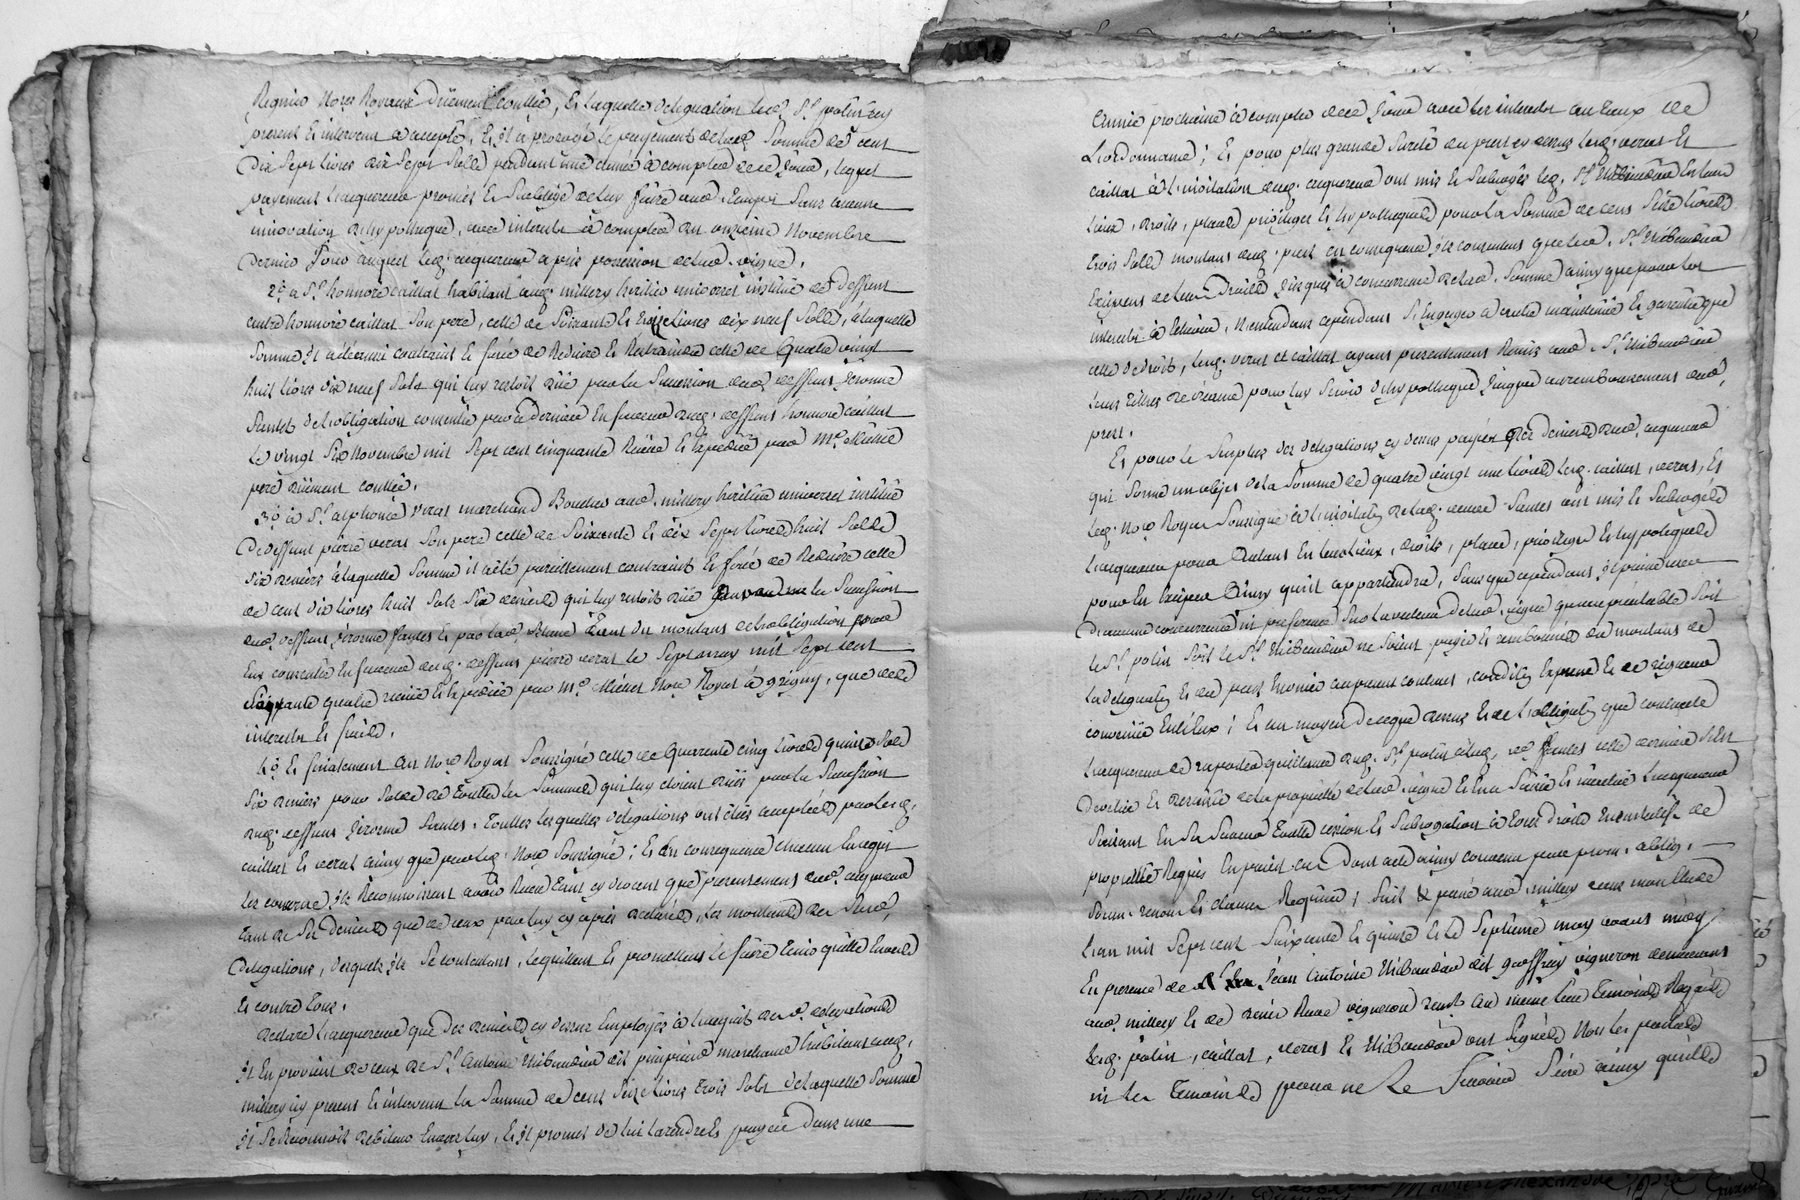 Requise Nores Royaux düement Conllée, Et laquelle delegation led. Sr. polin icy
present Et intervenu a accepté, Et il a prorogé le payement de lad. Somme de cent
Dix Sept Livres dix Sept Solls pendant une année à compter de ce Jour, lequel
payement L'acquereur promet Et S'oblige de luy faire aud. Temps Sans aucune
innovation d'hypotheque, avec interests à compter du onzieme Novembre
Dernier Jour auquel led. acquereur a pris possession de lad. vigne.
2°. a Sr. honnoré Caillat habitant aud. millery heritier universel institué de deffunt
autre honnoré Caillat Son pere, celle de Soixante Et Livres dix neuf Solls, à laquelle
Somme il a été contraint Et forcé de Reduire Et Restraindre celle de Quatre vingt
huit Livres dix neuf Sols qui luy restoit düe par la Succession dud. deffunt Jerome
Sautes de l'obligation consentie par ce dernier En faveur dud. deffunt honnoré Caillat
Le vingt Six Novembre mil Sept cent cinquante Reçue Et Expediée par Me.
pere düement Conllée.
3°. à Sr. alphonse Veras marchand Boucher aud. millery heritier universel institué
De deffunt pierre veras Son pere celle de Soixante Et dix Sept Livres huit Solls
Six deniers à laquelle Somme il a été pareillement contraint Et forcé de Reduire celle
de cent dix Livres huit Sols Six deniers qui luy restoit düe par la Succession
dud. deffunt Jérome Sautes Et par lad. Etant du montant de l'obligation par
Eux consentie En faveur dud. deffunt pierre veras le Sept mars mil Sept cent
Soixante quatre reçüe Et Expediée par Me. Nore Royal à grigny, que de
interests Et fraix.
4°. Et finalement au Nore Royal Soussigné celle de Quarente cinq Livres quinze Sols
Six deniers pour Solde de Touttes les Sommes qui luy étoient düés par la Succession
dud. deffunt Jerome Sautes. Touttes lesquelles délegations ont étées acceptées par lesd.
Caillat Et veras ainsy que par led. Nore Soussigné; Et En consequence chacun En ce qui
les concerne ils Reconnoissent avoir Reçu Tant cy devant que presentement dud. acquereur
tant de Ses deniers que de ceux par luy cy après declarés, les montants desd.
Delegations, desquels ils Se contentent, l'en quittent Et promettent le faire Tenir quitte Envers
Et contre Tous.
Declare L'acquereur que Des deniers cy dessus Employés à l'acquit desd. delegations
il En provient de ceux de Sr. Antoine Thibaudier dit marchand habitant aud.
millery icy present Et intervenu la Somme de cent Seize Livres Trois Sols de laquelle Somme
il Se Reconnoit debiteur Envers luy, Et il promet de lui la rendre Et payer dans une
Année prochaine à compter de ce Jour avec les interests au taux de
L'ordonnance; Et pour plus grande Sureté du prest cy dessus lesd. veras Et
Caillat à L'invitation dud. acquereur ont mis Et Subrogés led. Sr. Thibaudier En leur
Lieu, droits, place, privileges Et hypotheques pour la Somme de cent Seize Livres
trois Solls montant dud. prest En consequence ils consentent que led. Sr. Thibaudier
Exercent de leurs Droits Jusques à concurrence de lad. Somme ainsy que pour les
interests à Echeoir, N'entendants cependant S'Engager à autre maintenüe Et garentie que
celle de droit, lesd. veras et Caillat ayant presentement Remis aud. Sr. Thibaudier
leurs Titres de créance pour luy Servir d'hypotheque Jusques au remboursement dud.
prest.
Et pour le Surplus des delegations cy dessus payées des deniers dud. acquereur
qui forme un objet de la Somme de quatre vingt une Livres lesd. Caillat, veras, Et
led. Nore Royal Soussigné à L'invitation de lad. veuve Sautes ont mis Et Subrogés
L'acquereur pour Autant En leurs Lieux, droits, place, privileges Et hypotheques
pour En ainsy qu'il appartiendra, Sans que cependant il puisse user
D'aucune concurrence ni preference Sur la valeur de lad. vigne qu'au préalable Soit
le Sr. polin Soit le Sr. Thibaudier ne Soient payés Et remboursés du montant de
la delegation Et du prest Enoncé au present contract, condition Expresse Et de rigueur
convenüe Entr'Eux; Et au moyen de ce que dessus Et de L'obligation que contracte
L'acquereur de rapporter quittance dud. Sr. polin à lad. ve. Sautes cette derniere S'Est
Devestüe Et dessaisie de la propriété de lad. vigne Et En a Saisie Et investie L'acquereur
Suivant En Sa faveur Toutte cession Et Subrogation à tous Droits de
propriété Requis En pareil cas Dont acte ainsy convenu par prom. oblig.
Soum. renon. Et clauses Requises; fait & passé aud. millery
L'an mil Sept cent Soixante Et quinze Et le Septieme may avant midy
En presence de Jean Antoine Thibaudier dit Geoffray vigneron demeurant
aud. millery Et de vigneron audit lieu Témoins Requis
lesd. polin, Caillat, veras Et Thibaudier ont Signés Non les parties
ni les Temoins pour ne Le Sçavoir faire ainsy qu'ils